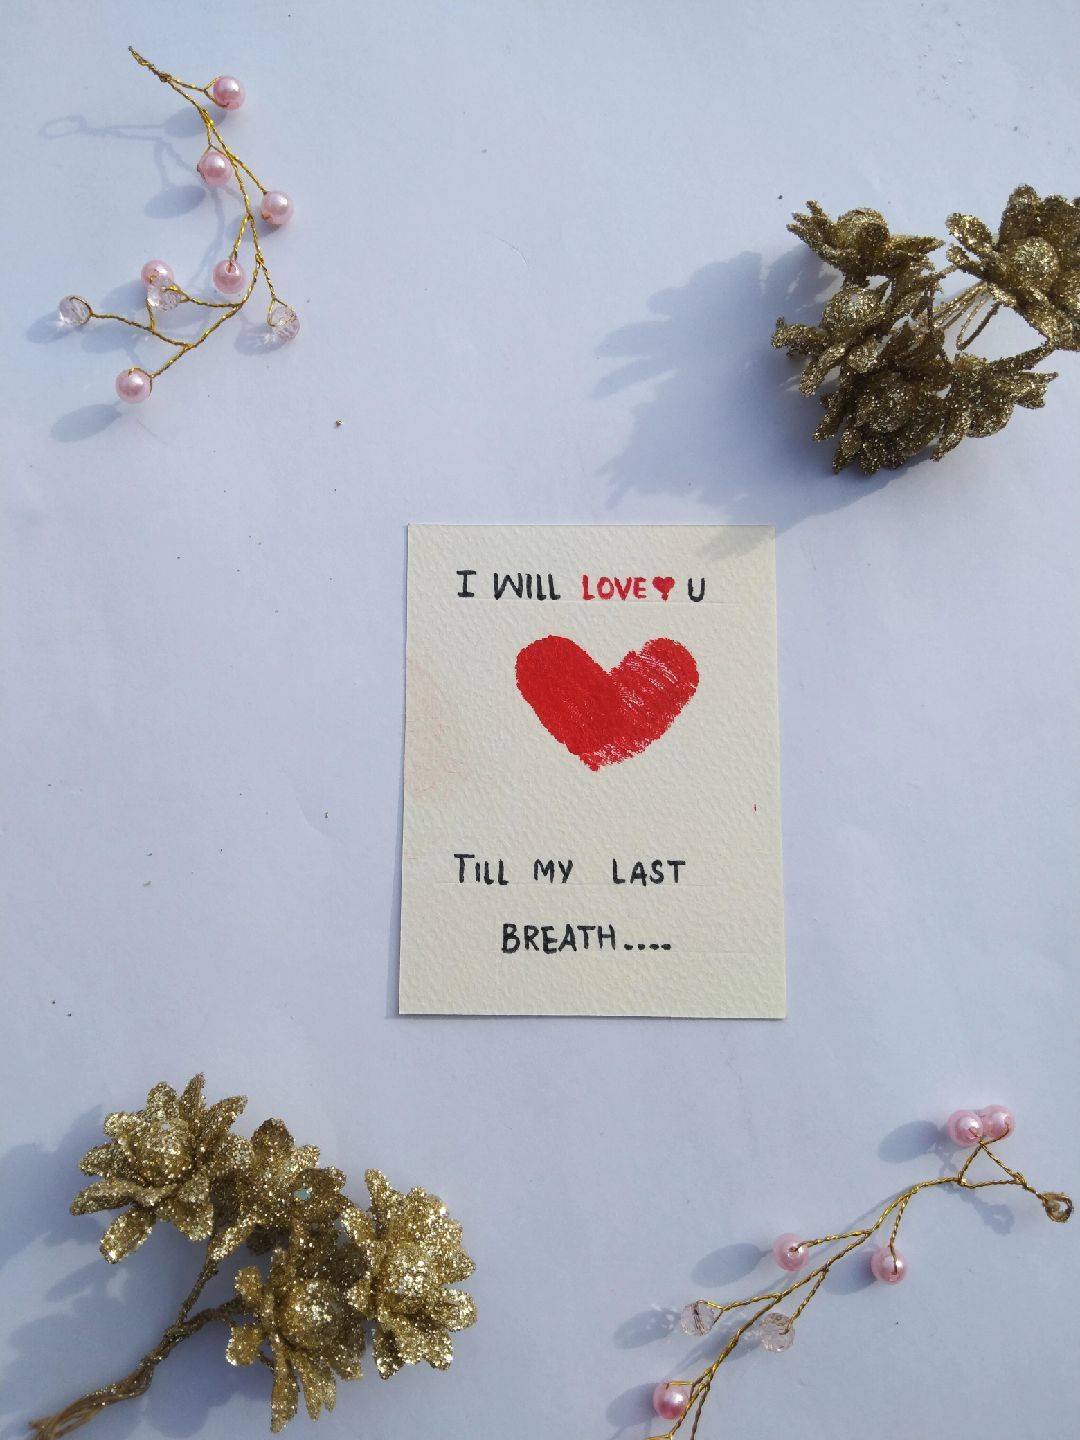 I WILL LOVE♥ U
TILL MY LAST
BREATH....